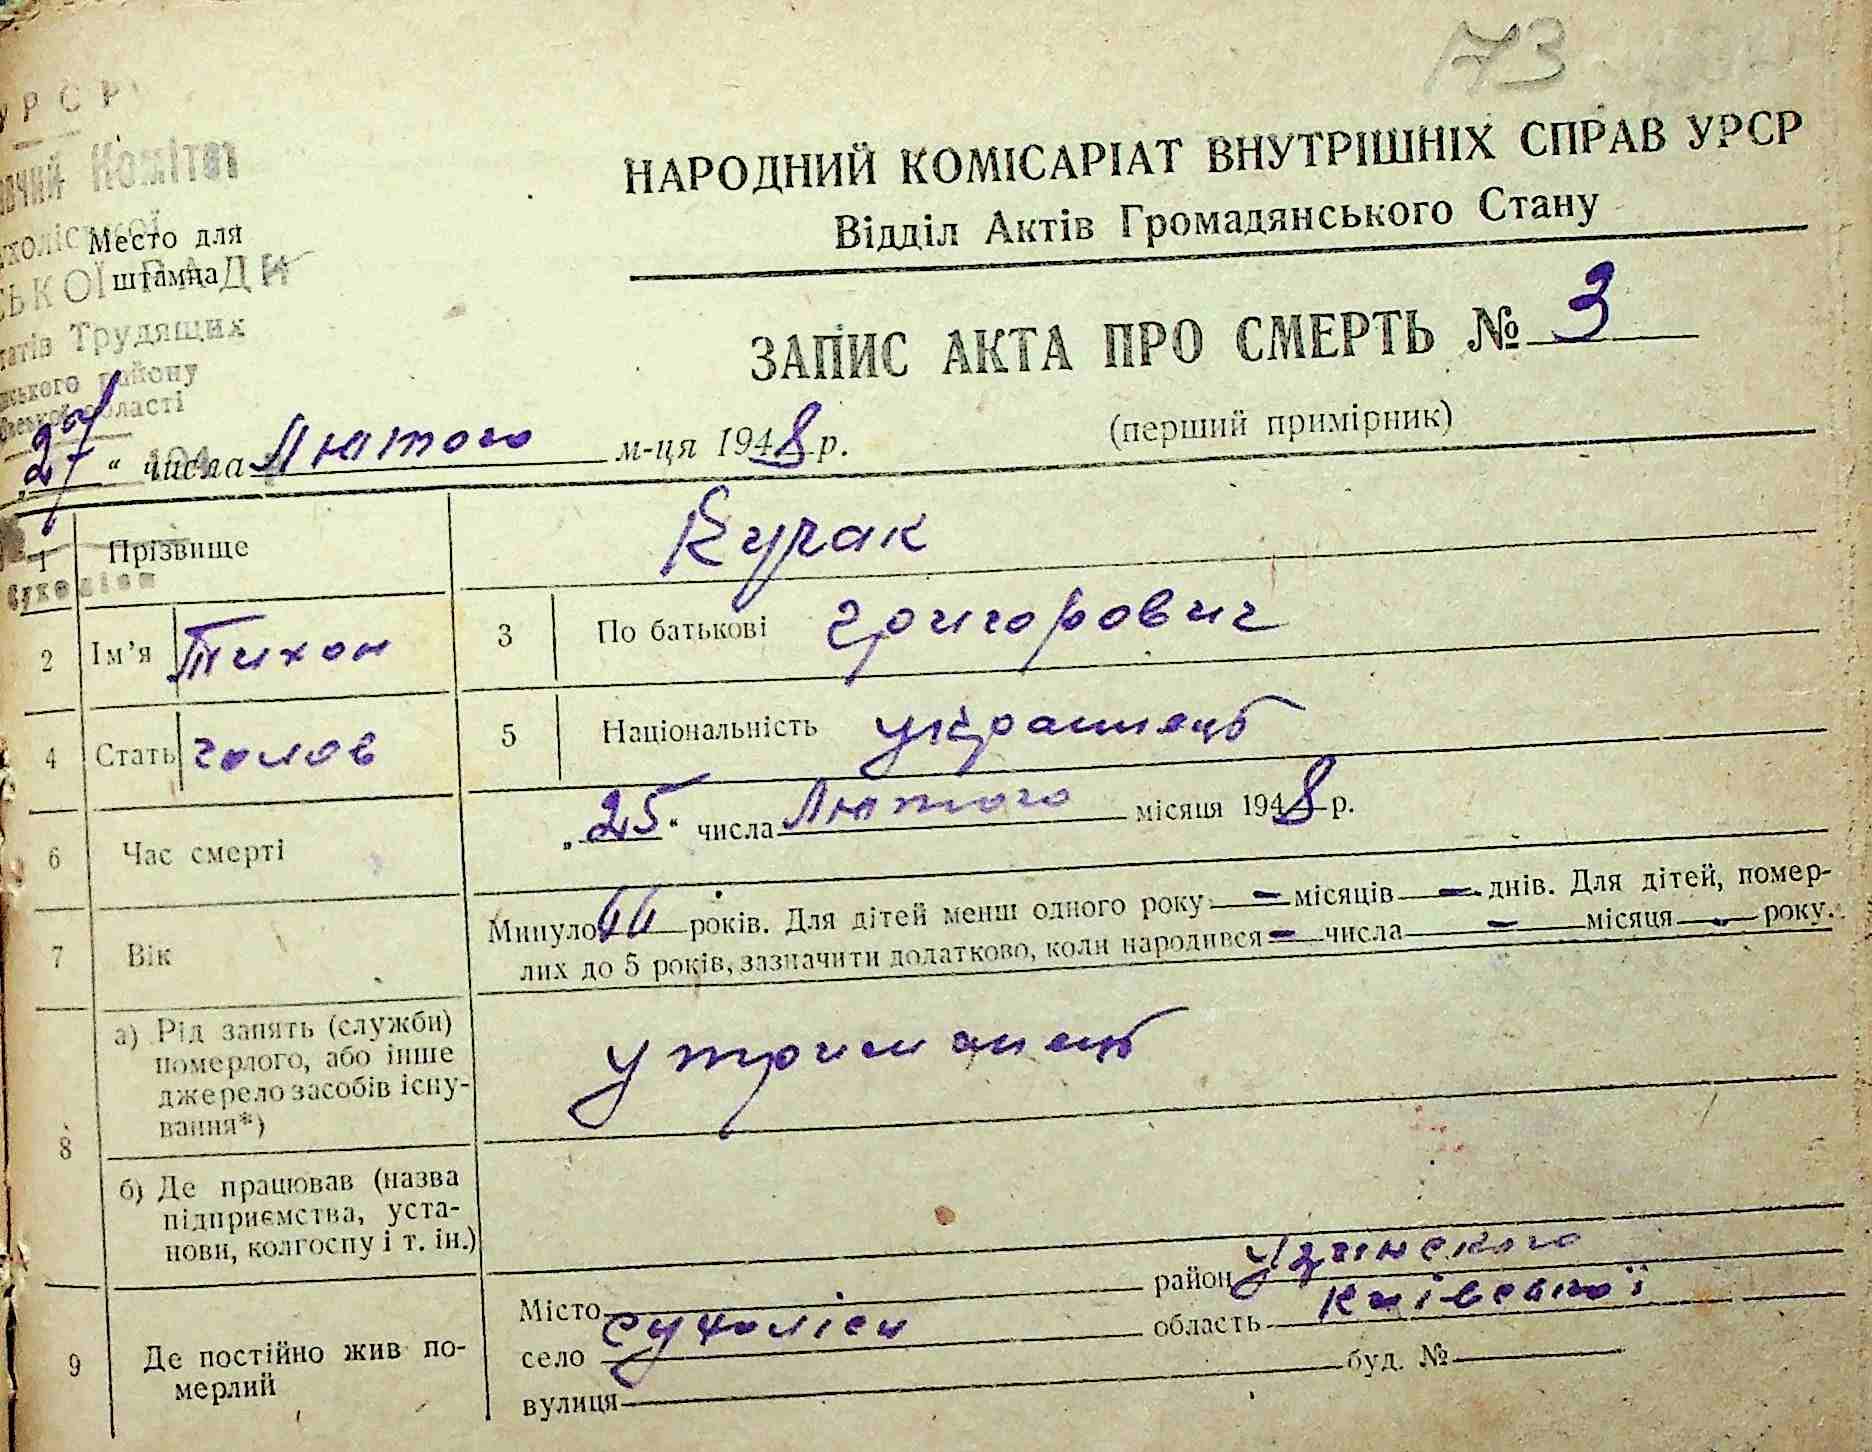 173
УРСР
Комітет
Место для
штампа
РАДИ
Трудящих
району
області
НАРОДНИЙ КОМІСАРІАТ ВНУТРІШНІХ СПРАВ УРСР
Відділ Актів Громадянського Стану
ЗАПИС АКТА ПРО СМЕРТЬ № 3
(перший примірник)
27 " числа Лютого м-ця 1948 р.
1 Прізвище
2 Ім'я Тихон 3 По батькові Григорович
4 Стать чолов 5 Національність українець
6 Час смерті „ 25 " числа Лютого місяця 1948 р.
7 Вік Минуло років. Для дітей менш одного року — місяців — днів. Для дітей, помер-
лих до 5 років, зазначити додатково, коли народився — числа — місяця — року.
8 а) Рід занять (служби)
померлого, або інше
джерело засобів існу-
вання*)
утриманець
б) Де працював (назва
підприємства, уста-
нови, колгоспу і т. ін.)
9 Де постійно жив по-
мерлий
Місто район Узинського
село Сухоліси область Київської
вулиця буд. №